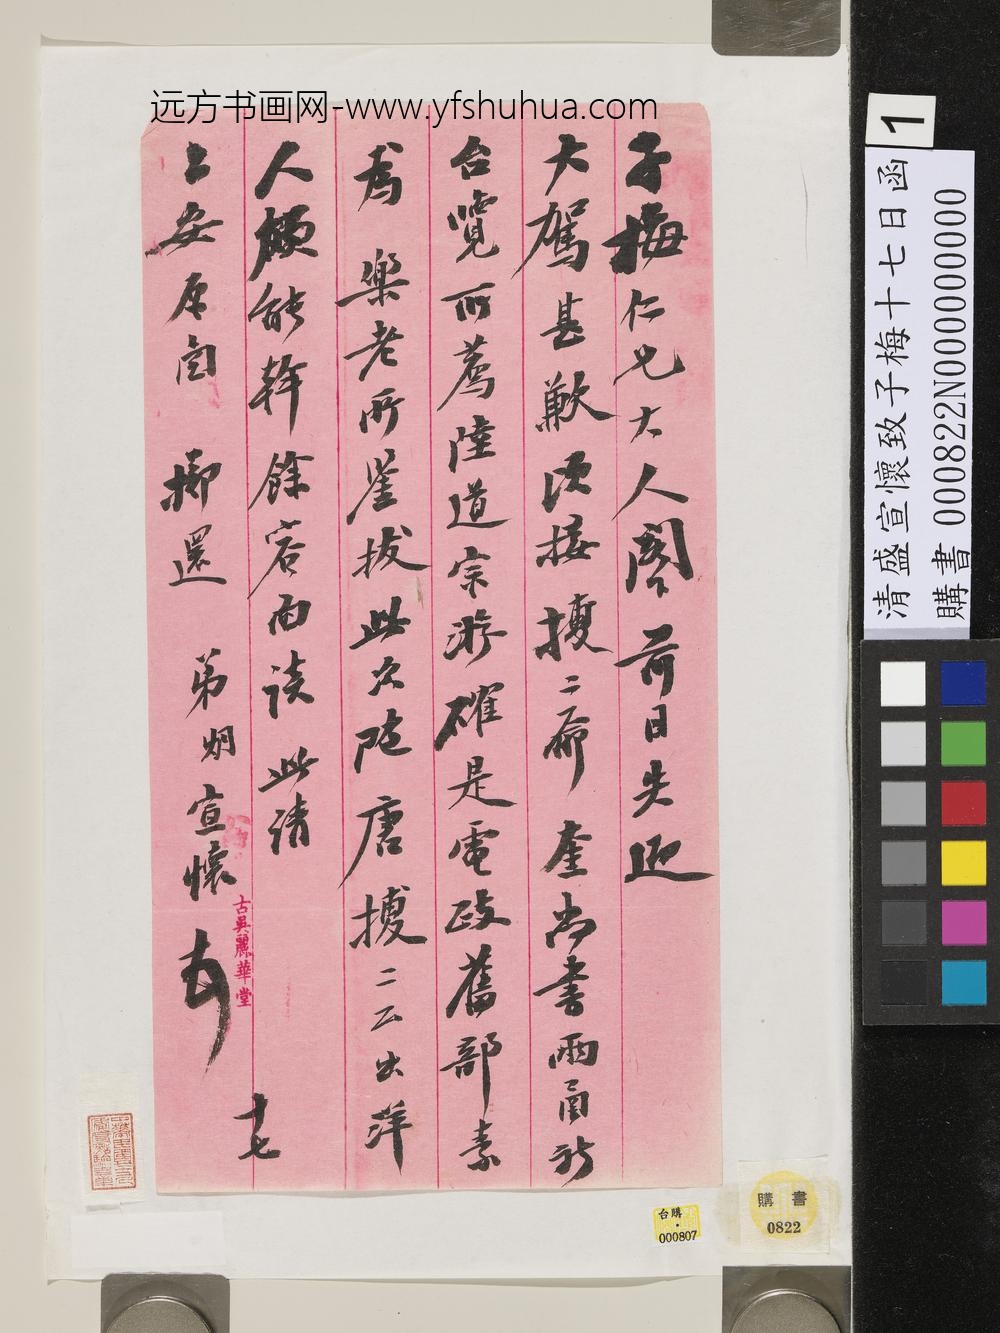 远方书画网-www.yfshuhua.com
子梅仁兄大人阁前日失迎
大駕甚歉頃接撫二andra奎尚書兩函祈
台覽所薦陸道宗游確是電政舊部素
為 樂老所崖拔此次陸 唐撫二公出洋
人頗能幹餘容面談 此請
上安原函 擲還 弟期宣懷
十七
古吳麗華堂
清盛宣懷致子梅十七日函
購書 000822N000000000
1
購書
0822
台購
000807